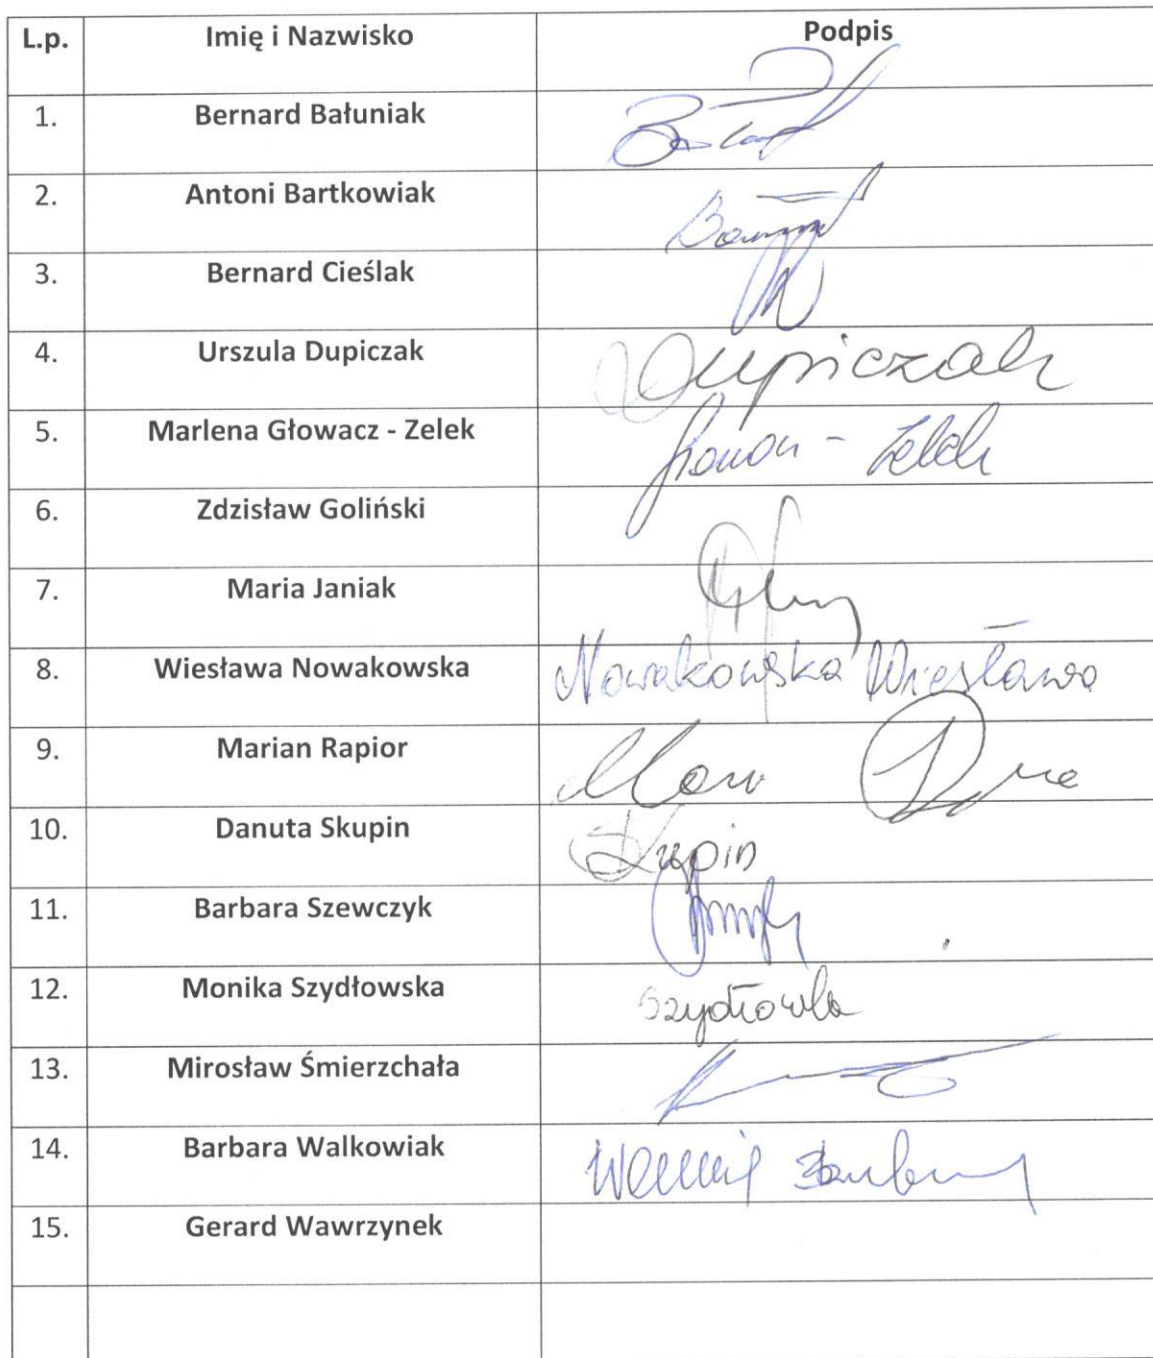 L.p. Imię i Nazwisko Podpis
1. Bernard Bałuniak
2. Antoni Bartkowiak
3. Bernard Cieślak
4. Urszula Dupiczak Dupiczak
5. Marlena Głowacz - Zelek
6. Zdzisław Goliński
7. Maria Janiak
8. Wiesława Nowakowska Nowakowska Wiesława
9. Marian Rapior
10. Danuta Skupin Skupin
11. Barbara Szewczyk
12. Monika Szydłowska
13. Mirosław Śmierzchała
14. Barbara Walkowiak
15. Gerard Wawrzynek